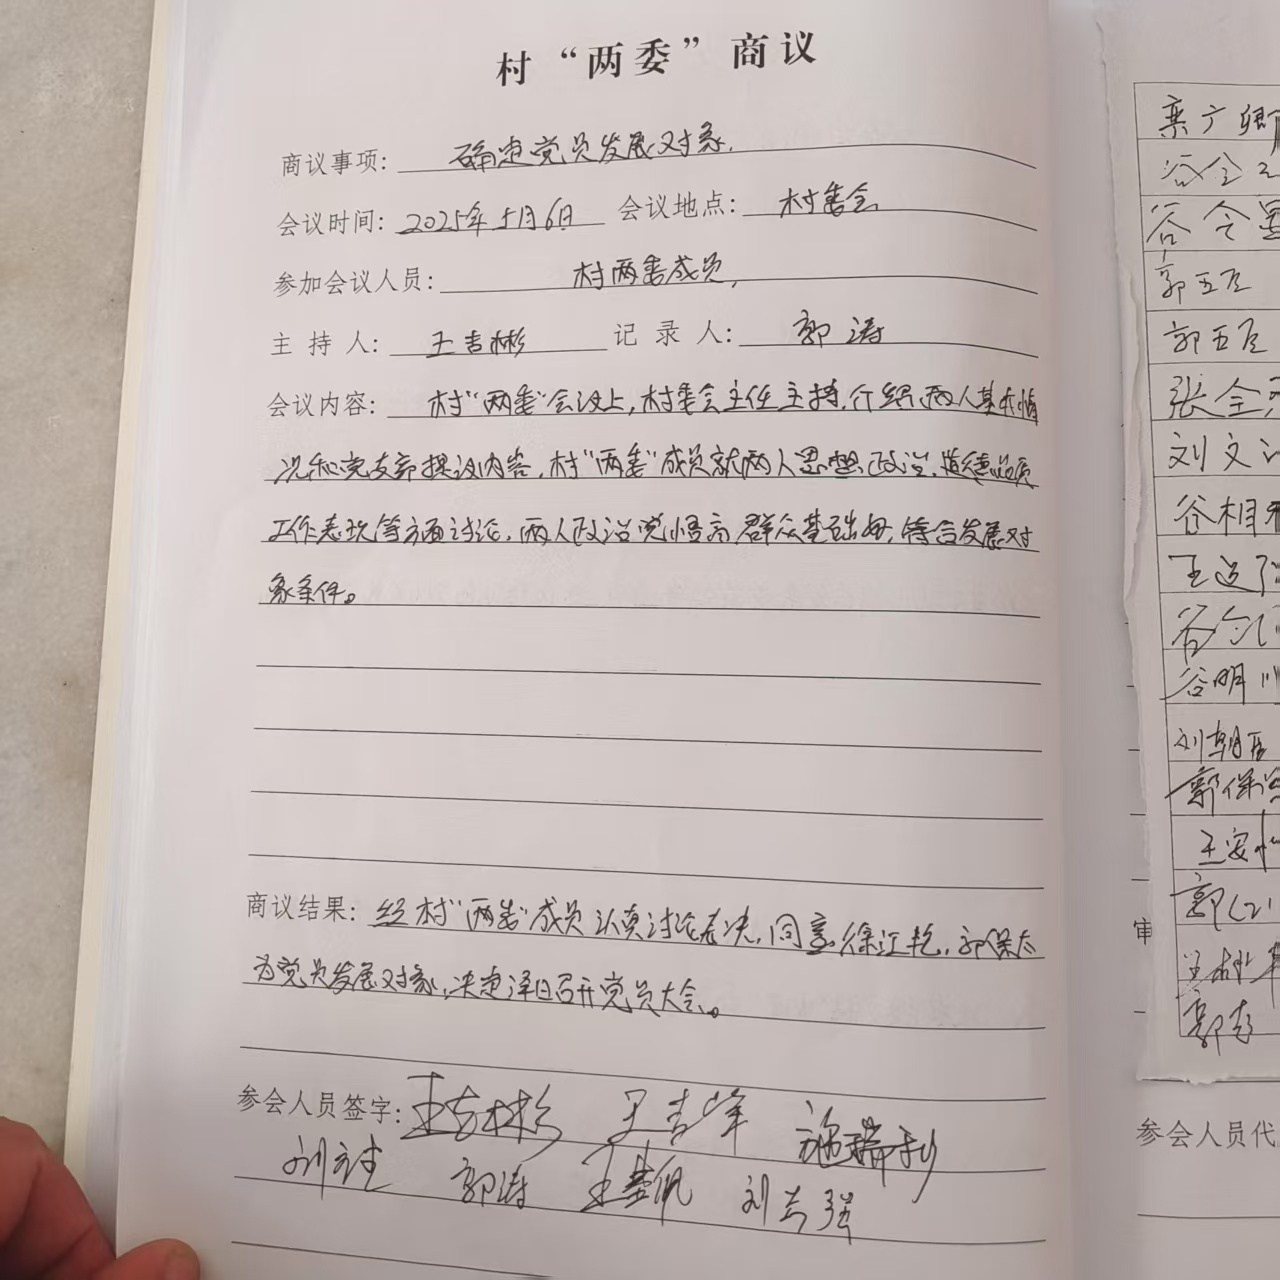 村“两委”商议
商议事项: 确定党员发展对象.
会议时间: 2025年5月6日 会议地点: 村委会
参加会议人员: 村两委成员,
主持人: 王吉彬 记录人: 郭涛
会议内容: 村“两委”会议上,村委会主任主持,介绍两人基本情
况和党支部提议内容,村“两委”成员就两人思想、政治、道德品质
工作表现等方面讨论,两人政治觉悟高,群众基础好,符合发展对
象条件。
商议结果: 经村“两委”成员认真讨论表决,同意徐江艳,郭保太
为党员发展对象,决定择日召开党员大会。
参会人员签字: 王吉彬 王吉峰 施瑞利
郭涛 刘吉强
栾广卿
谷全
谷令
郭五臣
郭五臣
张全
刘文
谷相
王
谷
谷明
刘朝臣
郭保
王安
郭
郭
审
参会人员代